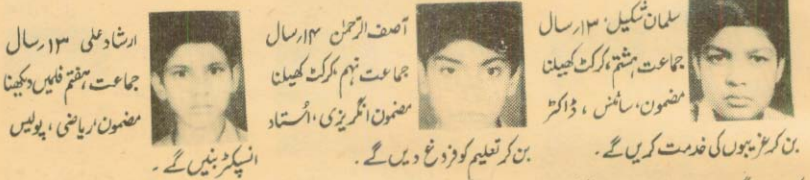 سلمان شکیل ۱۳ سال
جماعت ہشتم، کرکٹ کھیلنا
مضمون، سائنس، ڈاکٹر
بن کر غریبوں کی خدمت کریں گے۔
آصف الرحمٰن ۱۴ سال
جماعت نہم، کرکٹ کھیلنا
مضمون انگریزی، اُستاد
بن کر تعلیم کو فروغ دیں گے۔
ارشاد علی ۱۳ سال
جماعت ہفتم فلمیں دیکھنا
مضمون، ریاضی، پولیس
انسپکٹر بنیں گے۔